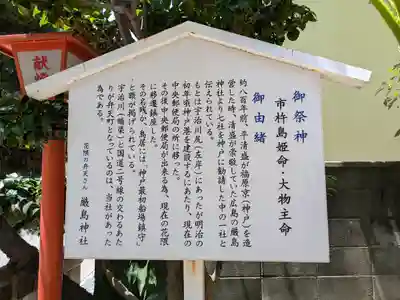 御祭神
市杵島姫命・大物主命
御由緒
約八百年前、平清盛が福原京(神戸)を造
営した時、清盛が崇敬していた広島の厳島
神社より七社を神戸に勧請した中の一社と
伝えられている。
もとは宇治川尻(左岸)にあったが明治の
初年頃神戸港を建設するにあたり、現在の
中央郵便局の所に移った。
その後中央郵便局が出来る為、現在の花隈
に移遷鎮座した。
その名残か、鳥居には「神戸最初船場鎮守」
と額が掲げられている。
宇治川(暗渠)と国道二号線の交わるあた
りが弁天町となっているのは、当社があった
為である。
花隈の弁天さん
厳島神社
献